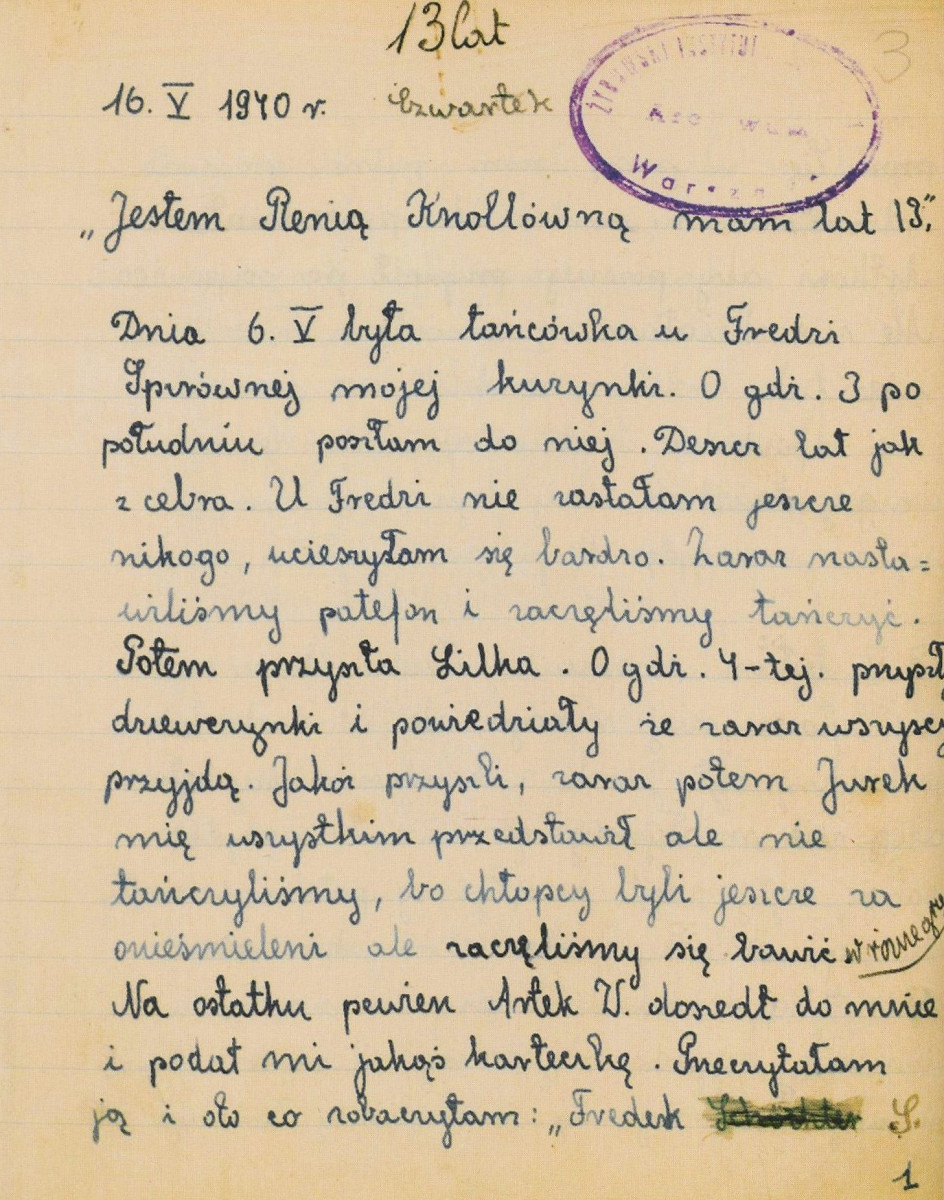 13 lat
3
16. V 1940 r. Czwartek
ŻYDOWSKI INSTYTUT
Warszawa
„Jestem Renią Knollówną mam lat 13.”
Dnia 6. V była tańcówka u Fredzi
mojej kuzynki. O gdz. 3 po
południu poszłam do niej. Deszcz lał jak
z cebra. U Fredzi nie zastałam jeszcze
nikogo, ucieszyłam się bardzo. Zaraz nasta=
wiliśmy patefon i zaczęliśmy tańczyć.
Potem przyszła Lilka. O gdz. 4-tej. przyszł
dziewczynki i powiedziały że zaraz wszyscy
przyjdą. Jakóż przyszli, zaraz potem Jurek
mię wszystkim przedstawił ale nie
tańczyliśmy, bo chłopcy byli jeszcze za
onieśmieleni ale zaczęliśmy się bawić w różne gry
Na ostatku pewien Artek W. doszedł do mnie
i podał mi jakąś karteczkę. Przeczytałam
ją i oto co zobaczyłam: „Fredek S.
1